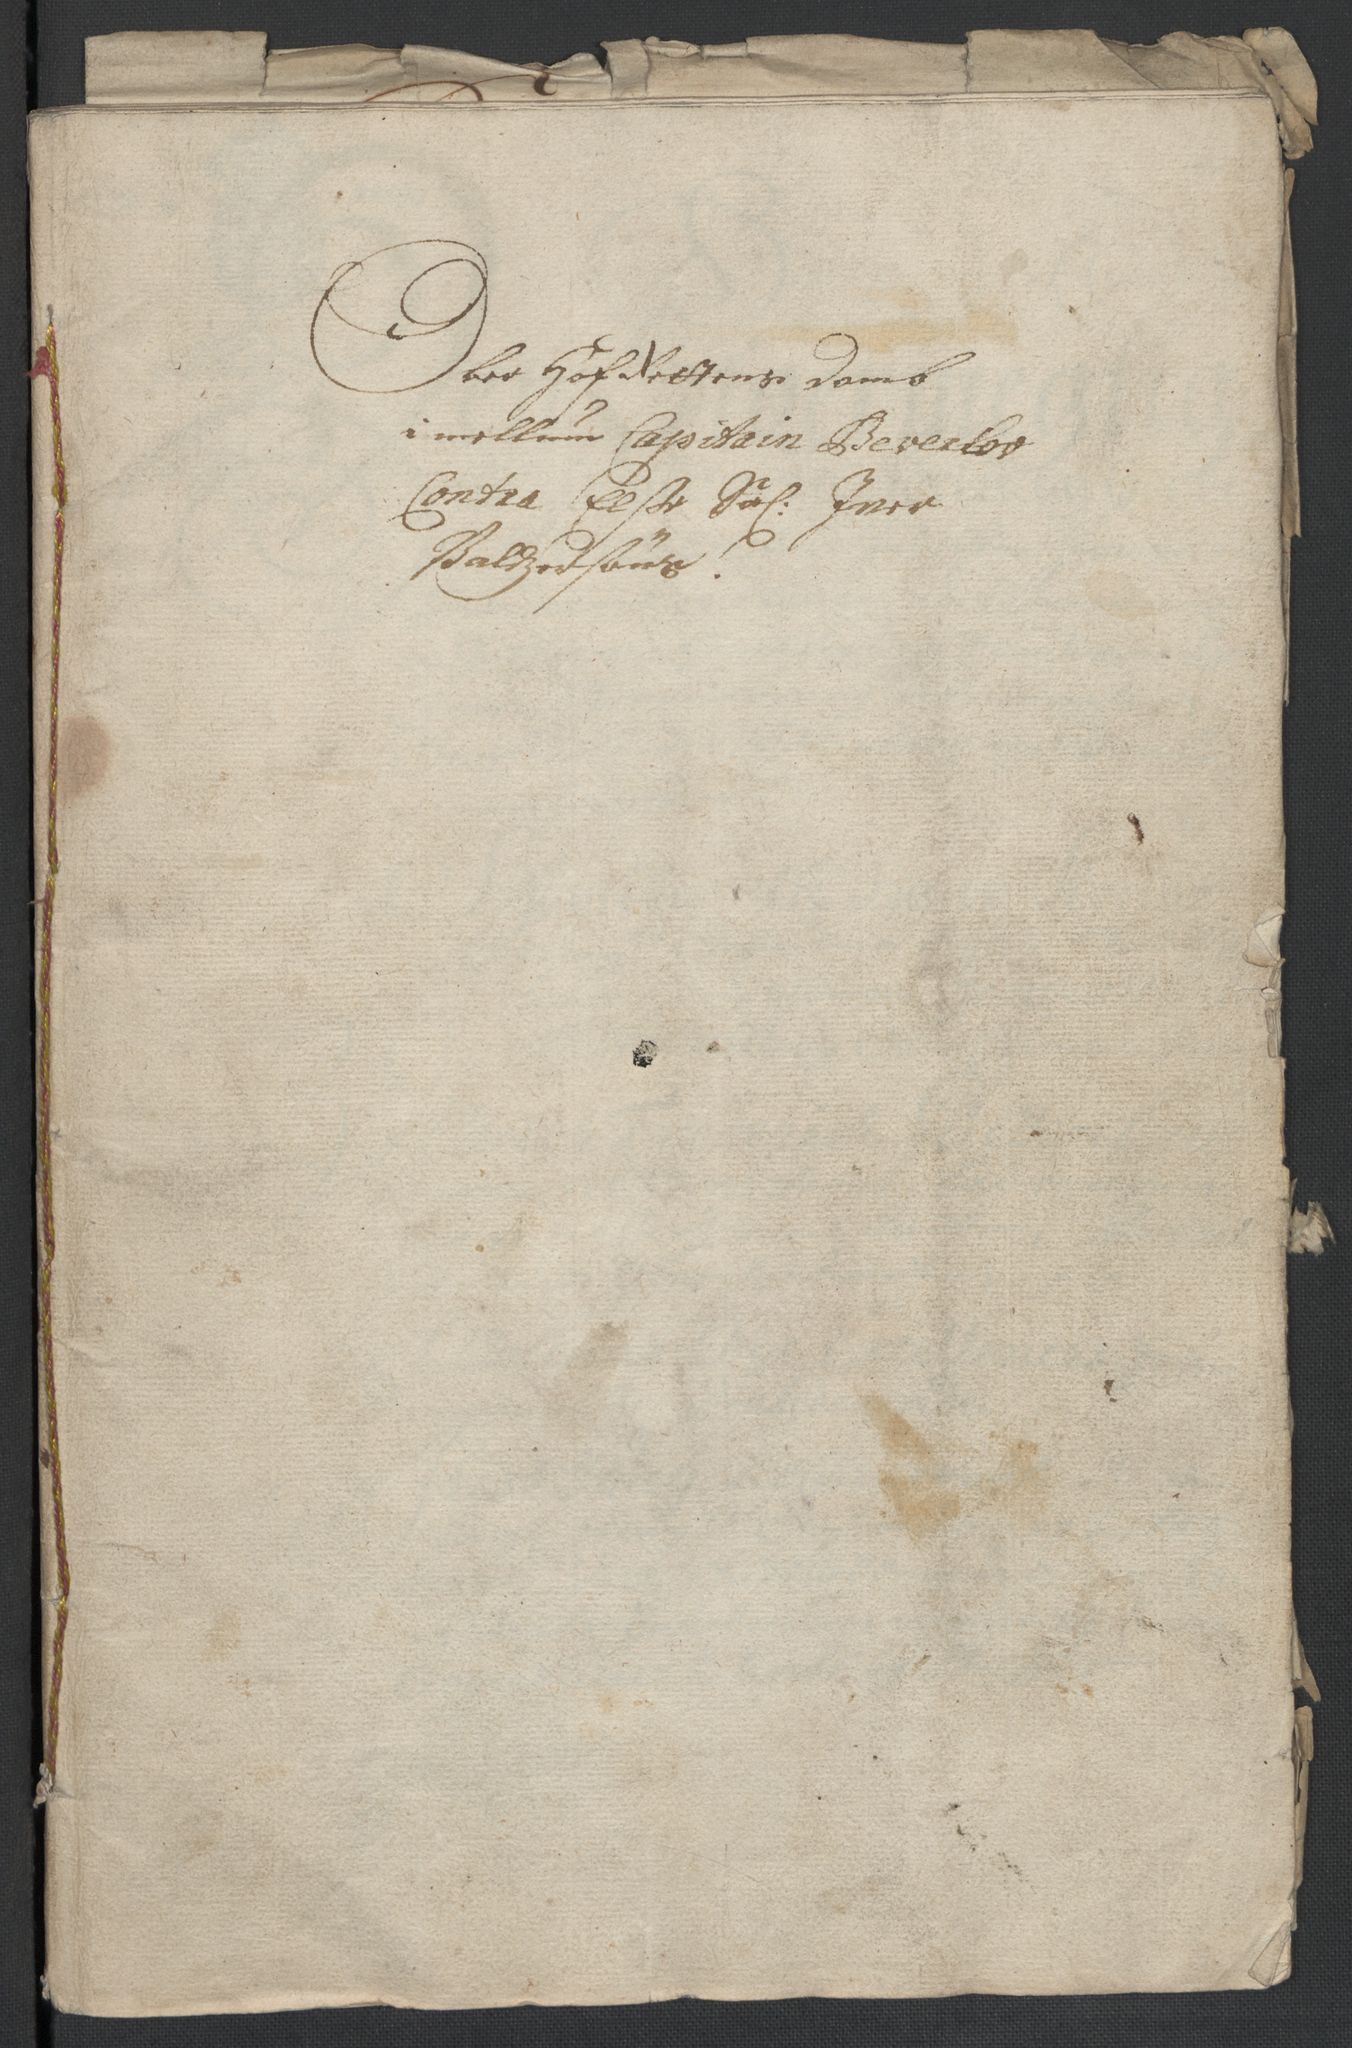 Ober Hof Rettens Domb
imellum Capitain Beverlov
Contra Else Sal: Iver
Baltzersöns!